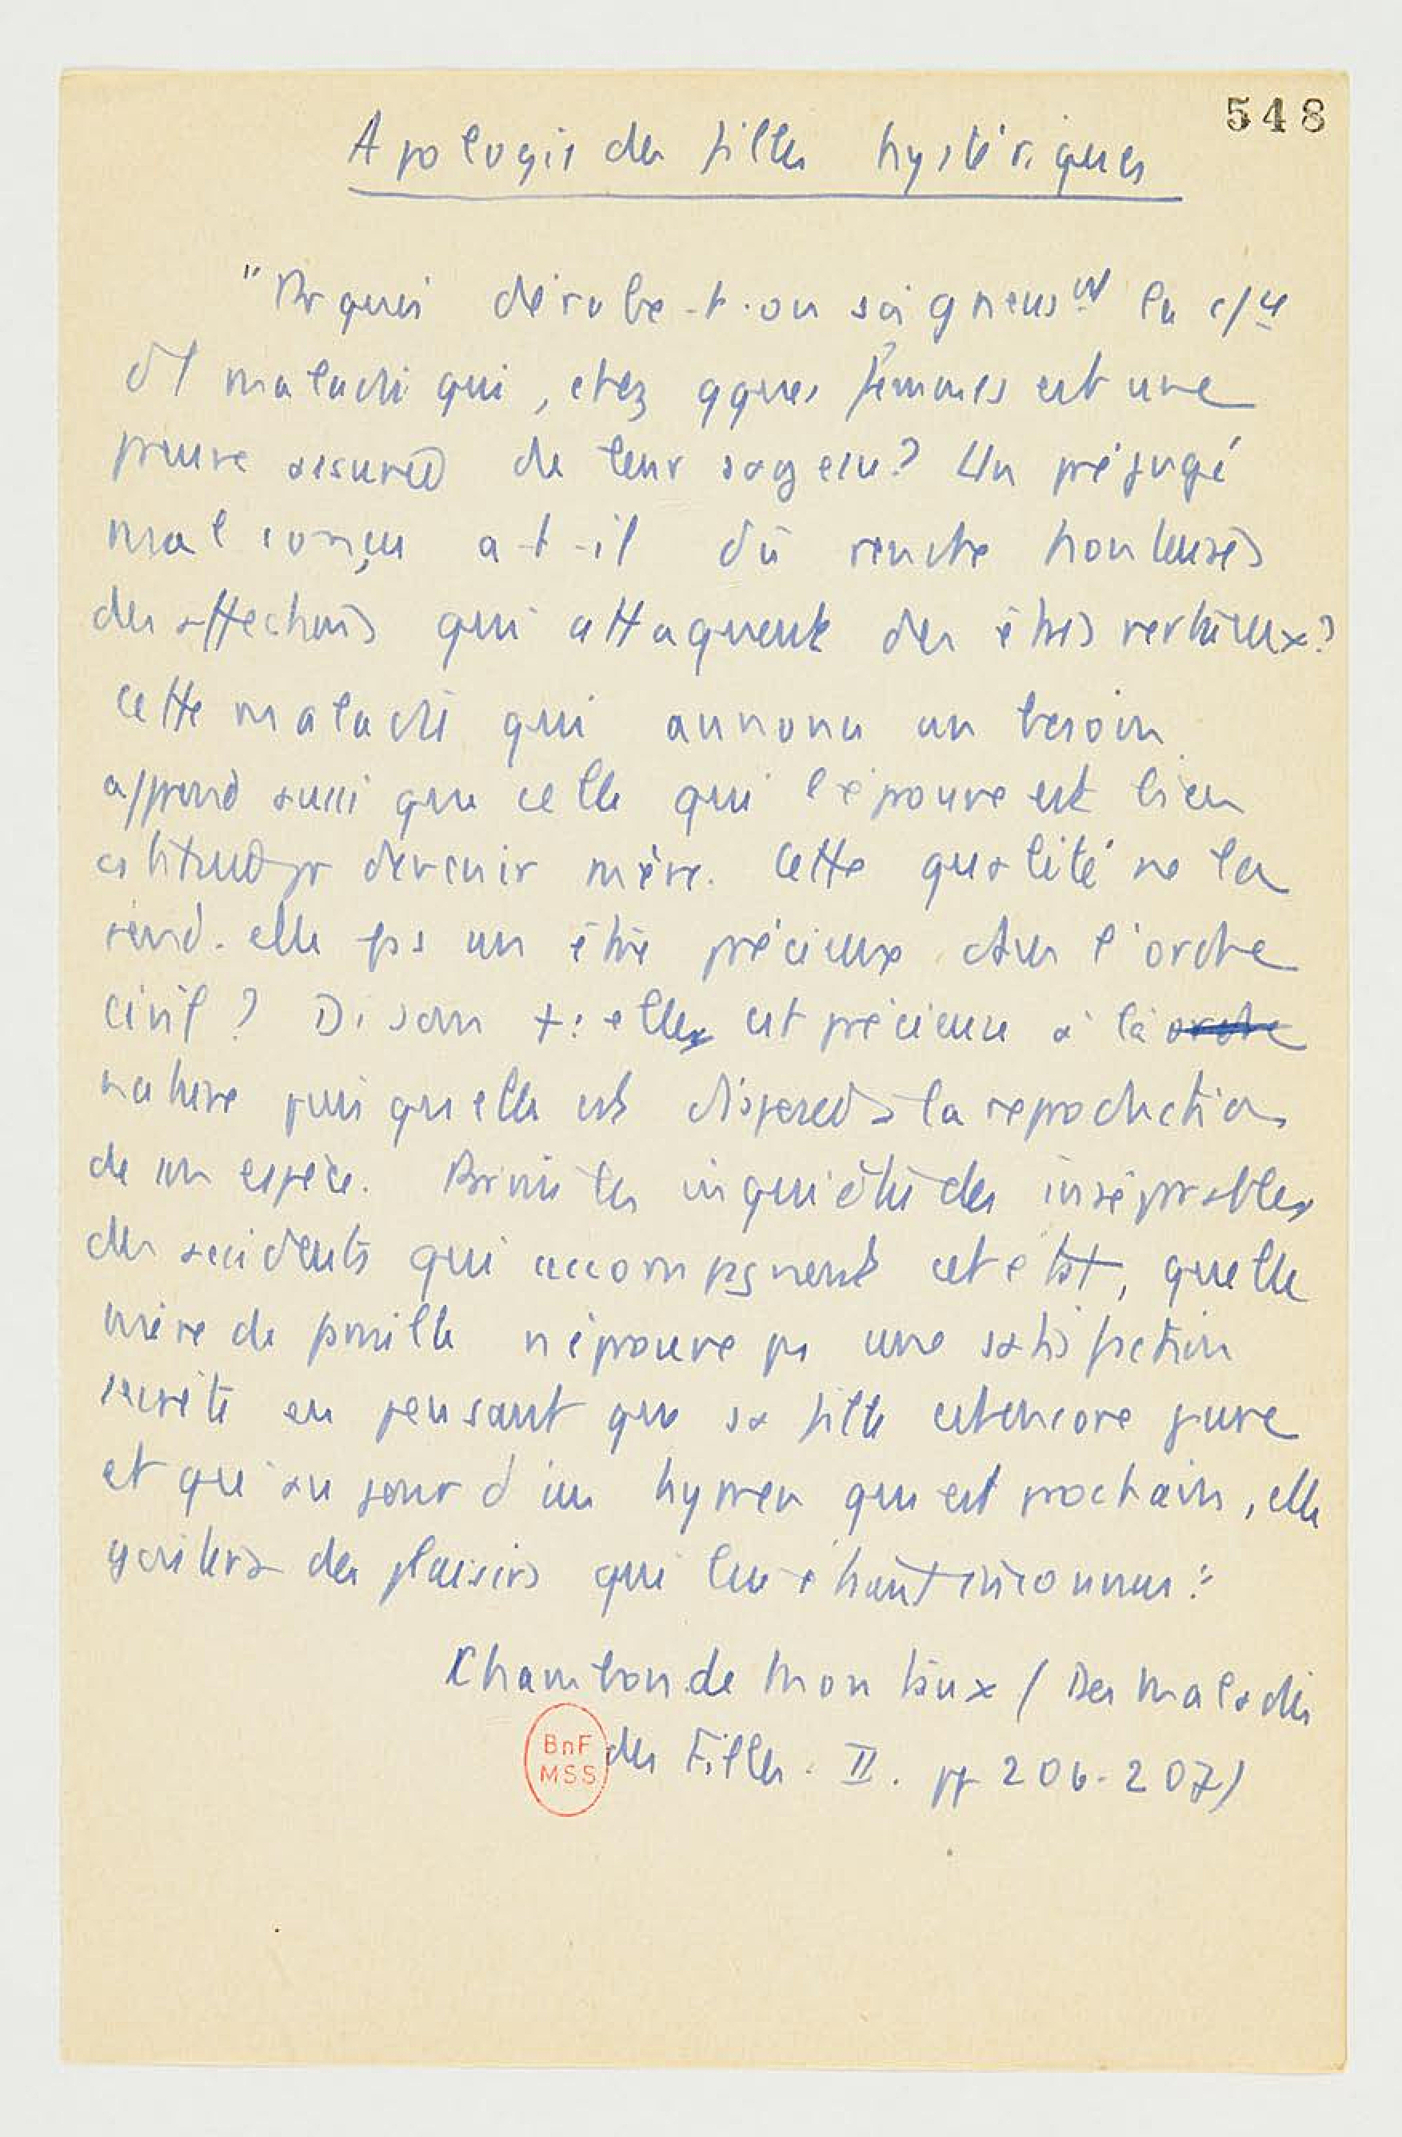 548
Apologie des filles hystériques
"Pr quoi dérobe-t-on soigneust la c/ce
d' maladie qui, chez qques femmes est une
preuve assurée de leur sagesse? Un préjugé
mal conçu a-t-il dû rendre honteuses
des affections qui attaquent des êtres vertueux?
Cette maladie qui annonce un besoin
apprend aussi que celle qui l'éprouve est bien
constituée pr devenir mère. Cette qualité ne la
rend-elle pas un être précieux dans l'ordre
civil? Disons +: elle est précieuse à la ordre
nature puisqu'elle est disposée à la reproduction
de son espèce. Parmi les inquiétudes inséparables
des accidents qui accompagnent cet état, quelle
mère de famille n'éprouve pas une satisfaction
secrète en pensant que sa fille est encore pure
et qu'au jour d'un hymen qui est prochain, elle
goûtera des plaisirs qui lui étaient inconnus."
Chambon de Montaux (Des Maladies
des Filles. II. pp 206-207)
BnF
MSS